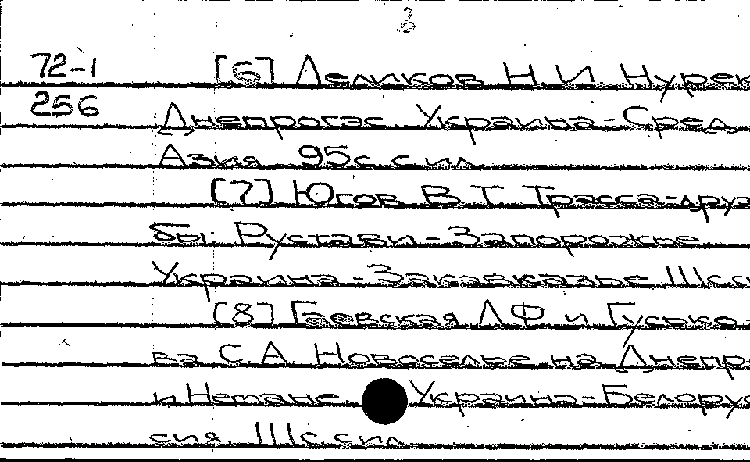 3
72-1 [6] Деликов Н.И. Нурек-
256 Днепрогэс. Украина-Сред.
Азия. 95с. с ил.
[7] Югов В.Т. Трасса друж
бы. Рустави-Запорожье.
Украина-Закавказье. 111с. с и
[8] Гаевская Л.Ф. и Гусько
ва С.А. Новоселье на Днепр
и Немане. Украина-Белорус
сия. 111с. с ил.